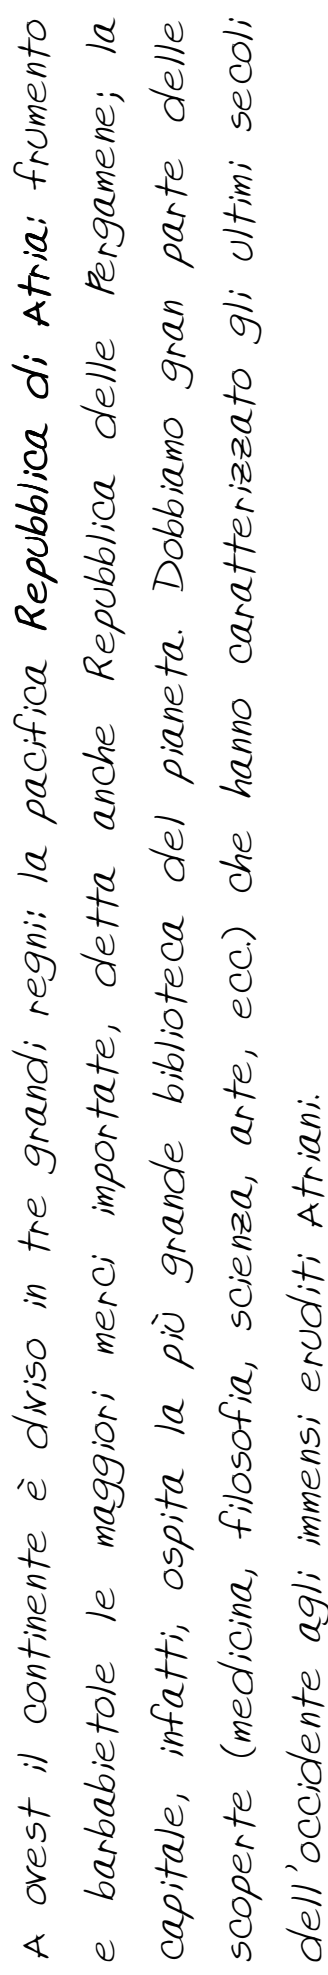 A ovest il continente è diviso in tre grandi regni: la pacifica Repubblica di Atria: frumento
e barbabietole le maggiori merci importate, detta anche Repubblica delle Pergamene; la
capitale, infatti, ospita la più grande biblioteca del pianeta. Dobbiamo gran parte delle
scoperte (medicina, filosofia, scienza, arte, ecc.) che hanno caratterizzato gli ultimi secoli
dell'occidente agli immensi eruditi Atriani.